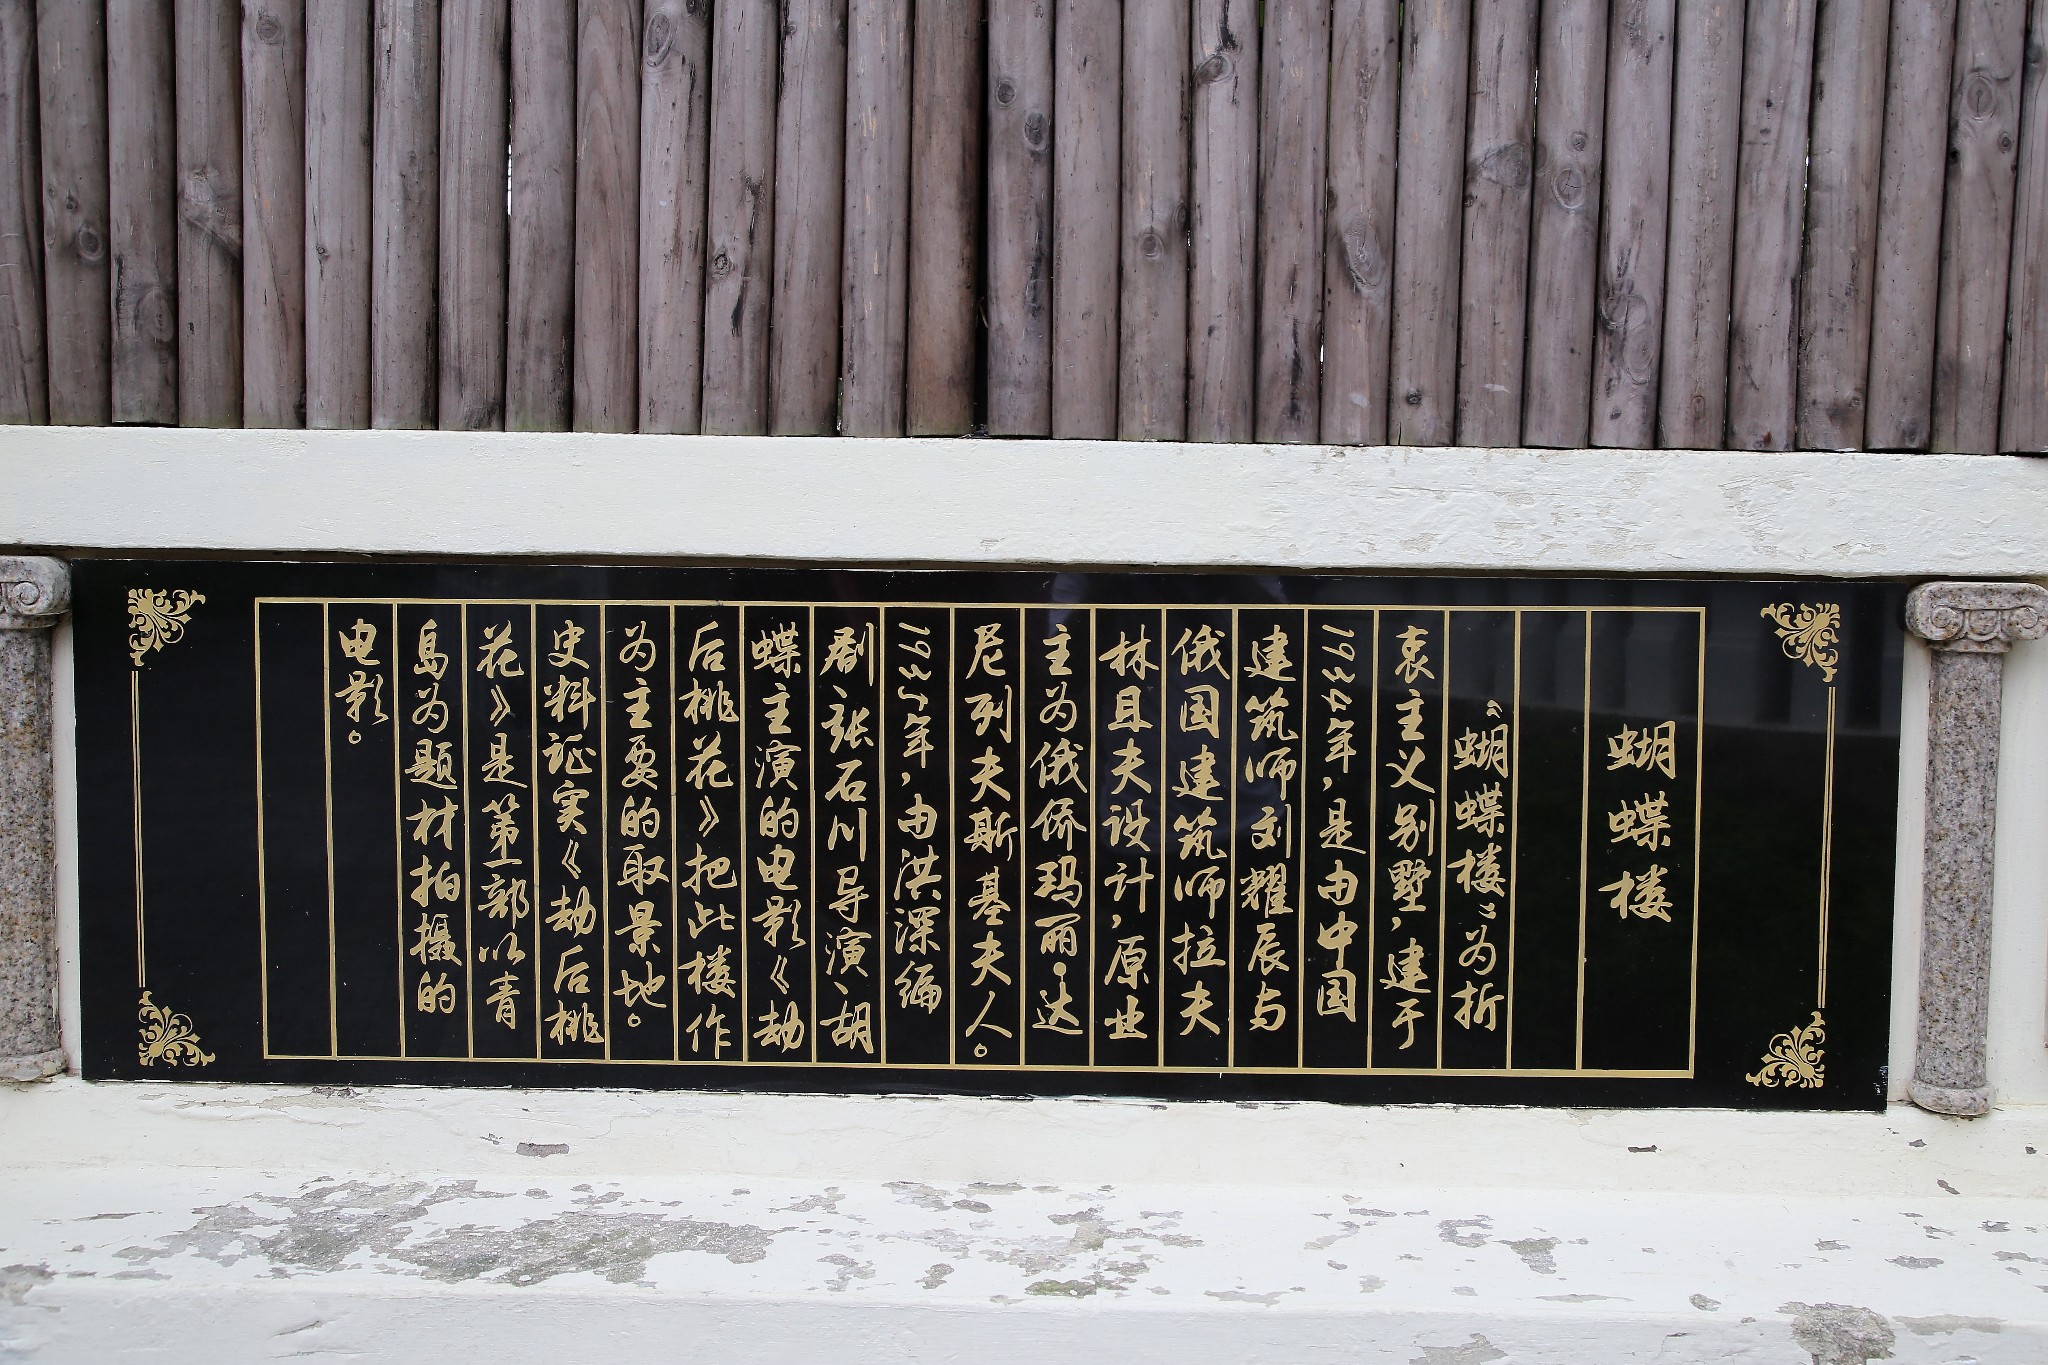 蝴蝶楼
“蝴蝶楼”为折
衷主义别墅，建于
1934年，是由中国
建筑师刘耀辰与
俄国建筑师拉夫
林且夫设计，原业
主为俄侨玛丽·达
尼列夫斯基夫人。
1935年，由洪深编
剧、张石川导演、胡
蝶主演的电影《劫
后桃花》把此楼作
为主要的取景地。
史料证实《劫后桃
花》是第一部以青
岛为题材拍摄的
电影。